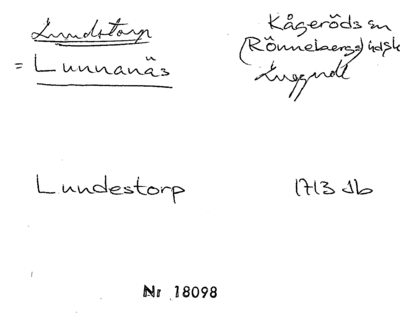 Lundstorp
= Lunnanäs
Kågeröds sn
(Rönnebergs) hdsk
Luggude
Lundestorp 1713 Jb
Nr 18098